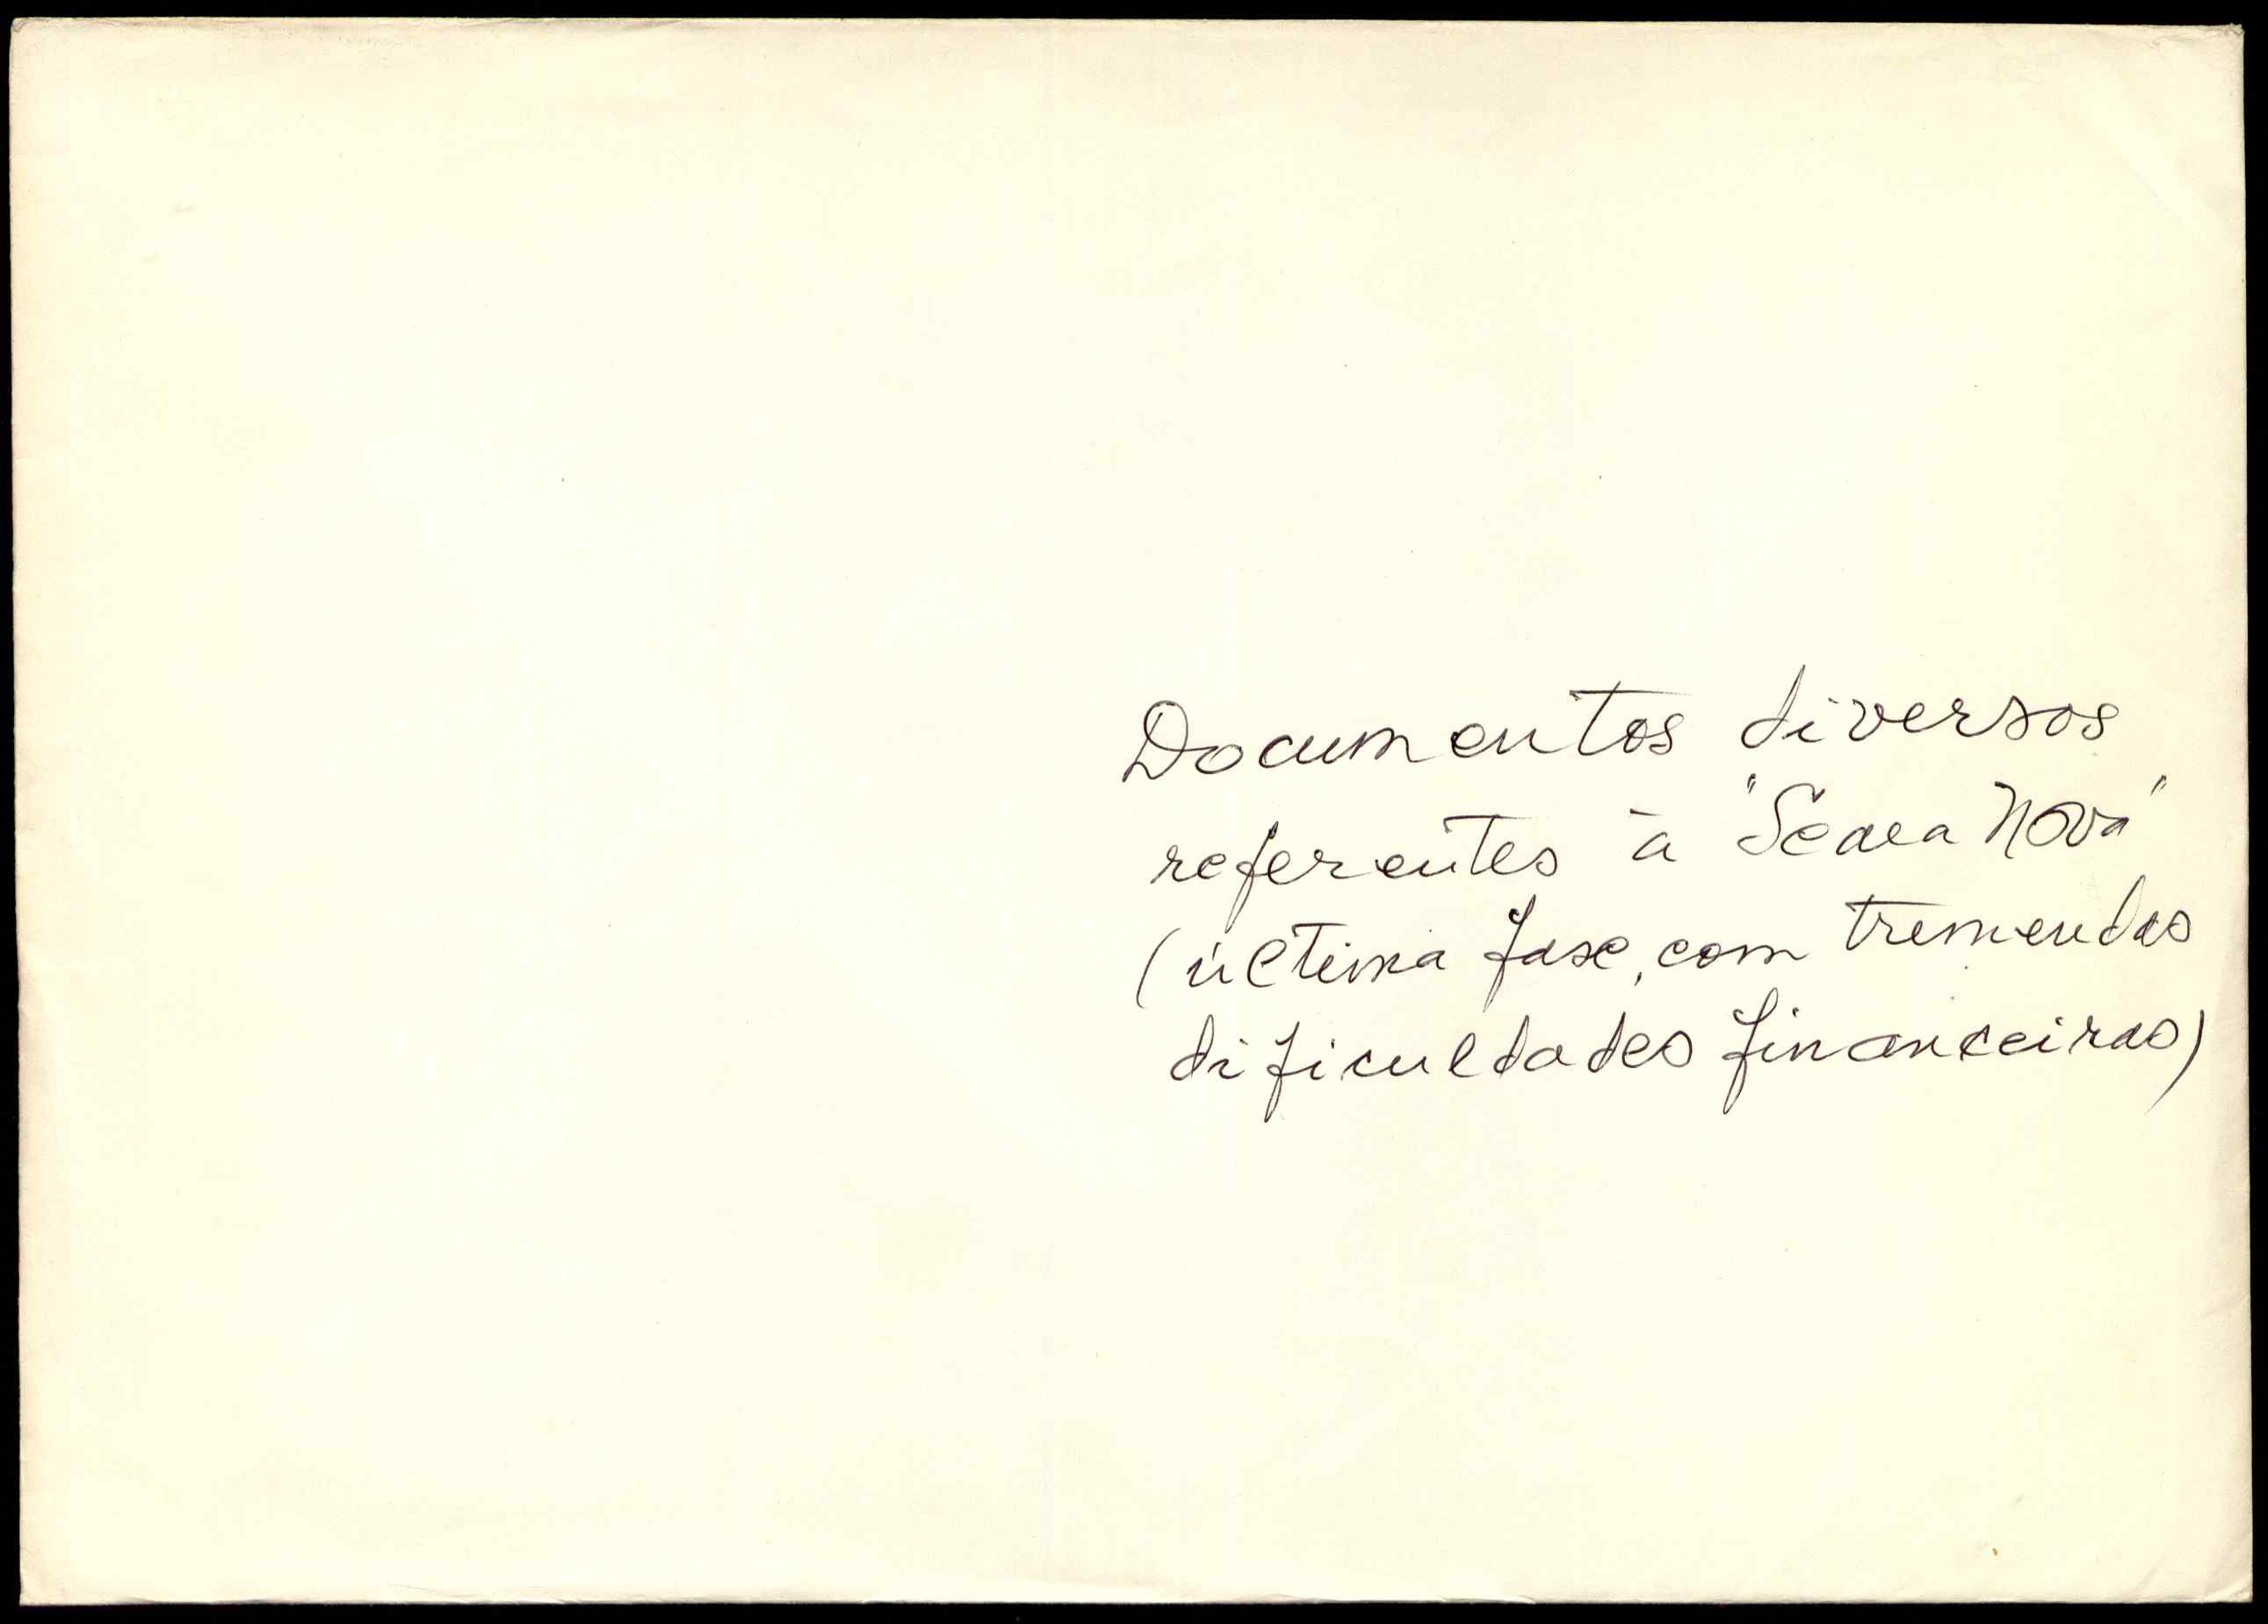 Documentos diversos
referentes à "Seara Nova"
(última fase, com tremendas
dificuldades financeiras)